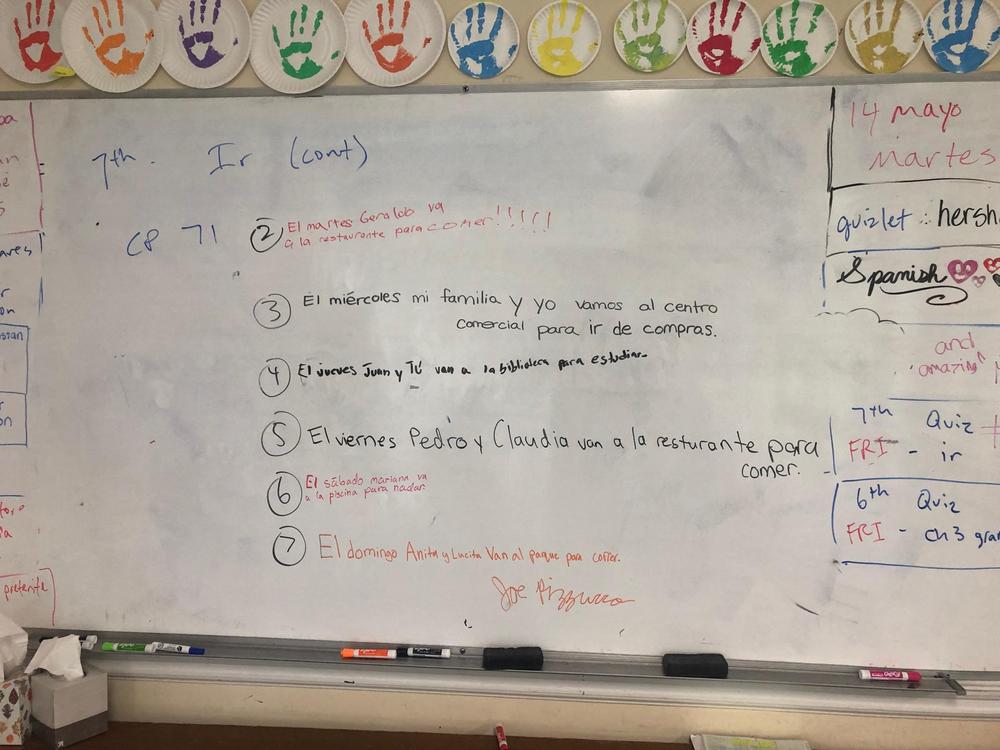 7th. Ir (cont)
CP 71
2 El martes Geraldo va
a la restaurante para comer!!!!!
3 El miércoles mi familia y yo vamos al centro
comercial para ir de compras.
4 El jueves Juan y Tú van a la biblioteca para estudiar.
5 El viernes Pedro y Claudia van a la resturante para
comer.
6 El sábado mariana va
a la piscina para nadar.
7 El domingo Anita y Lucita Van al parque para correr.
Joe
14 mayo
martes
quizlet : hersh
Spanish
and
amazing
7th Quiz
FRI - ir
6th Quiz
FRI - ch 3 gran
ares
on
preterite